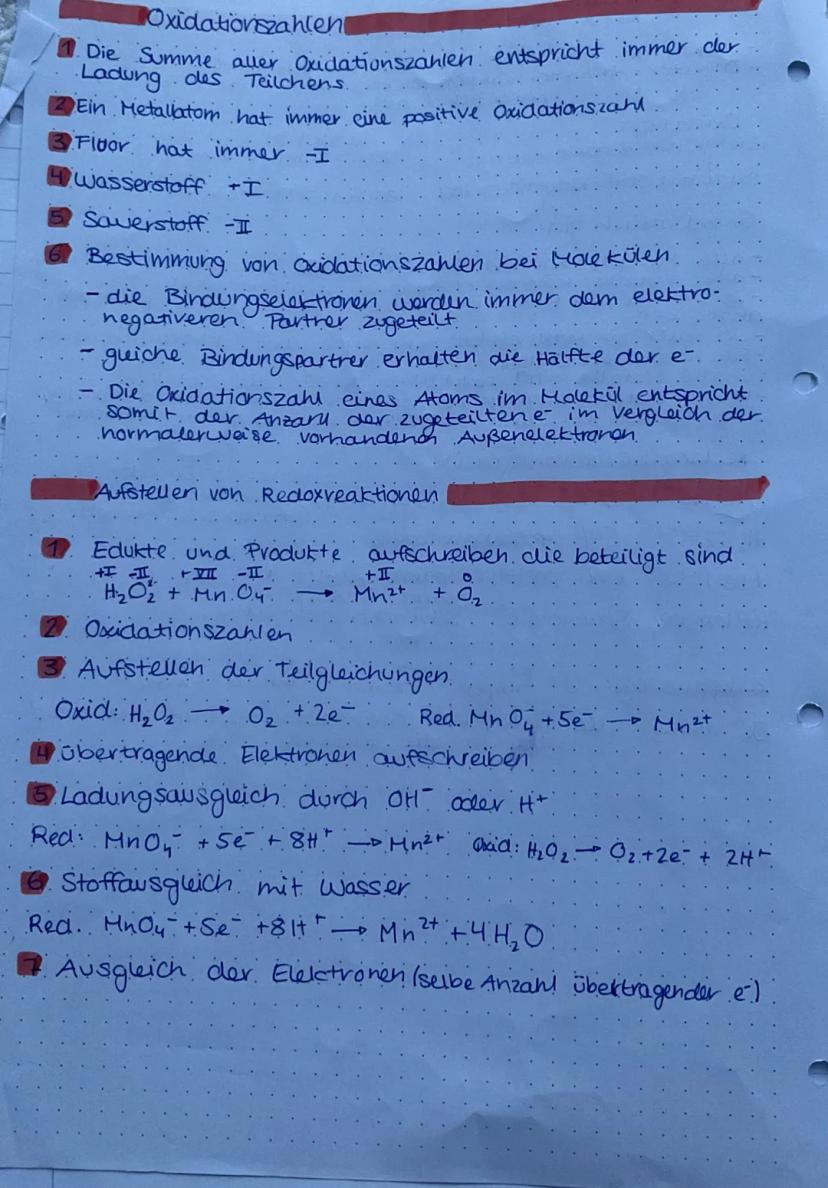 Oxidationszahlen
1 Die Summe aller Oxidationszahlen entspricht immer der
Ladung des Teilchens.
2 Ein Metallatom hat immer eine positive Oxidationszahl
3 Fluor hat immer -I
4 Wasserstoff +I
5 Sauerstoff -II
6 Bestimmung von Oxidationszahlen bei Molekülen
- die Bindungselektronen werden immer dem elektro-
negativeren Partner zugeteilt
- gleiche Bindungspartner erhalten die Hälfte der e⁻
- Die Oxidationszahl eines Atoms im Molekül entspricht
somit der Anzahl der zugeteilten e⁻ im Vergleich der
normalerweise vorhandenen Außenelektronen
Aufstellen von Redoxreaktionen
1 Edukte und Produkte aufschreiben die beteiligt sind
+I -II +VII -II +II 0
H₂O₂ + MnO₄⁻ → Mn²⁺ + O₂
2 Oxidationszahlen
3 Aufstellen der Teilgleichungen
Oxid: H₂O₂ → O₂ + 2e⁻ Red. MnO₄⁻ + 5e⁻ → Mn²⁺
4 übertragende Elektronen aufschreiben
5 Ladungsausgleich durch OH⁻ oder H⁺
Red: MnO₄⁻ + 5e⁻ + 8H⁺ → Mn²⁺ Oxid: H₂O₂ → O₂ + 2e⁻ + 2H⁺
6 Stoffausgleich mit Wasser
Red. MnO₄⁻ + 5e⁻ + 8H⁺ → Mn²⁺ + 4H₂O
7 Ausgleich der Elektronen (selbe Anzahl übertragender e⁻)